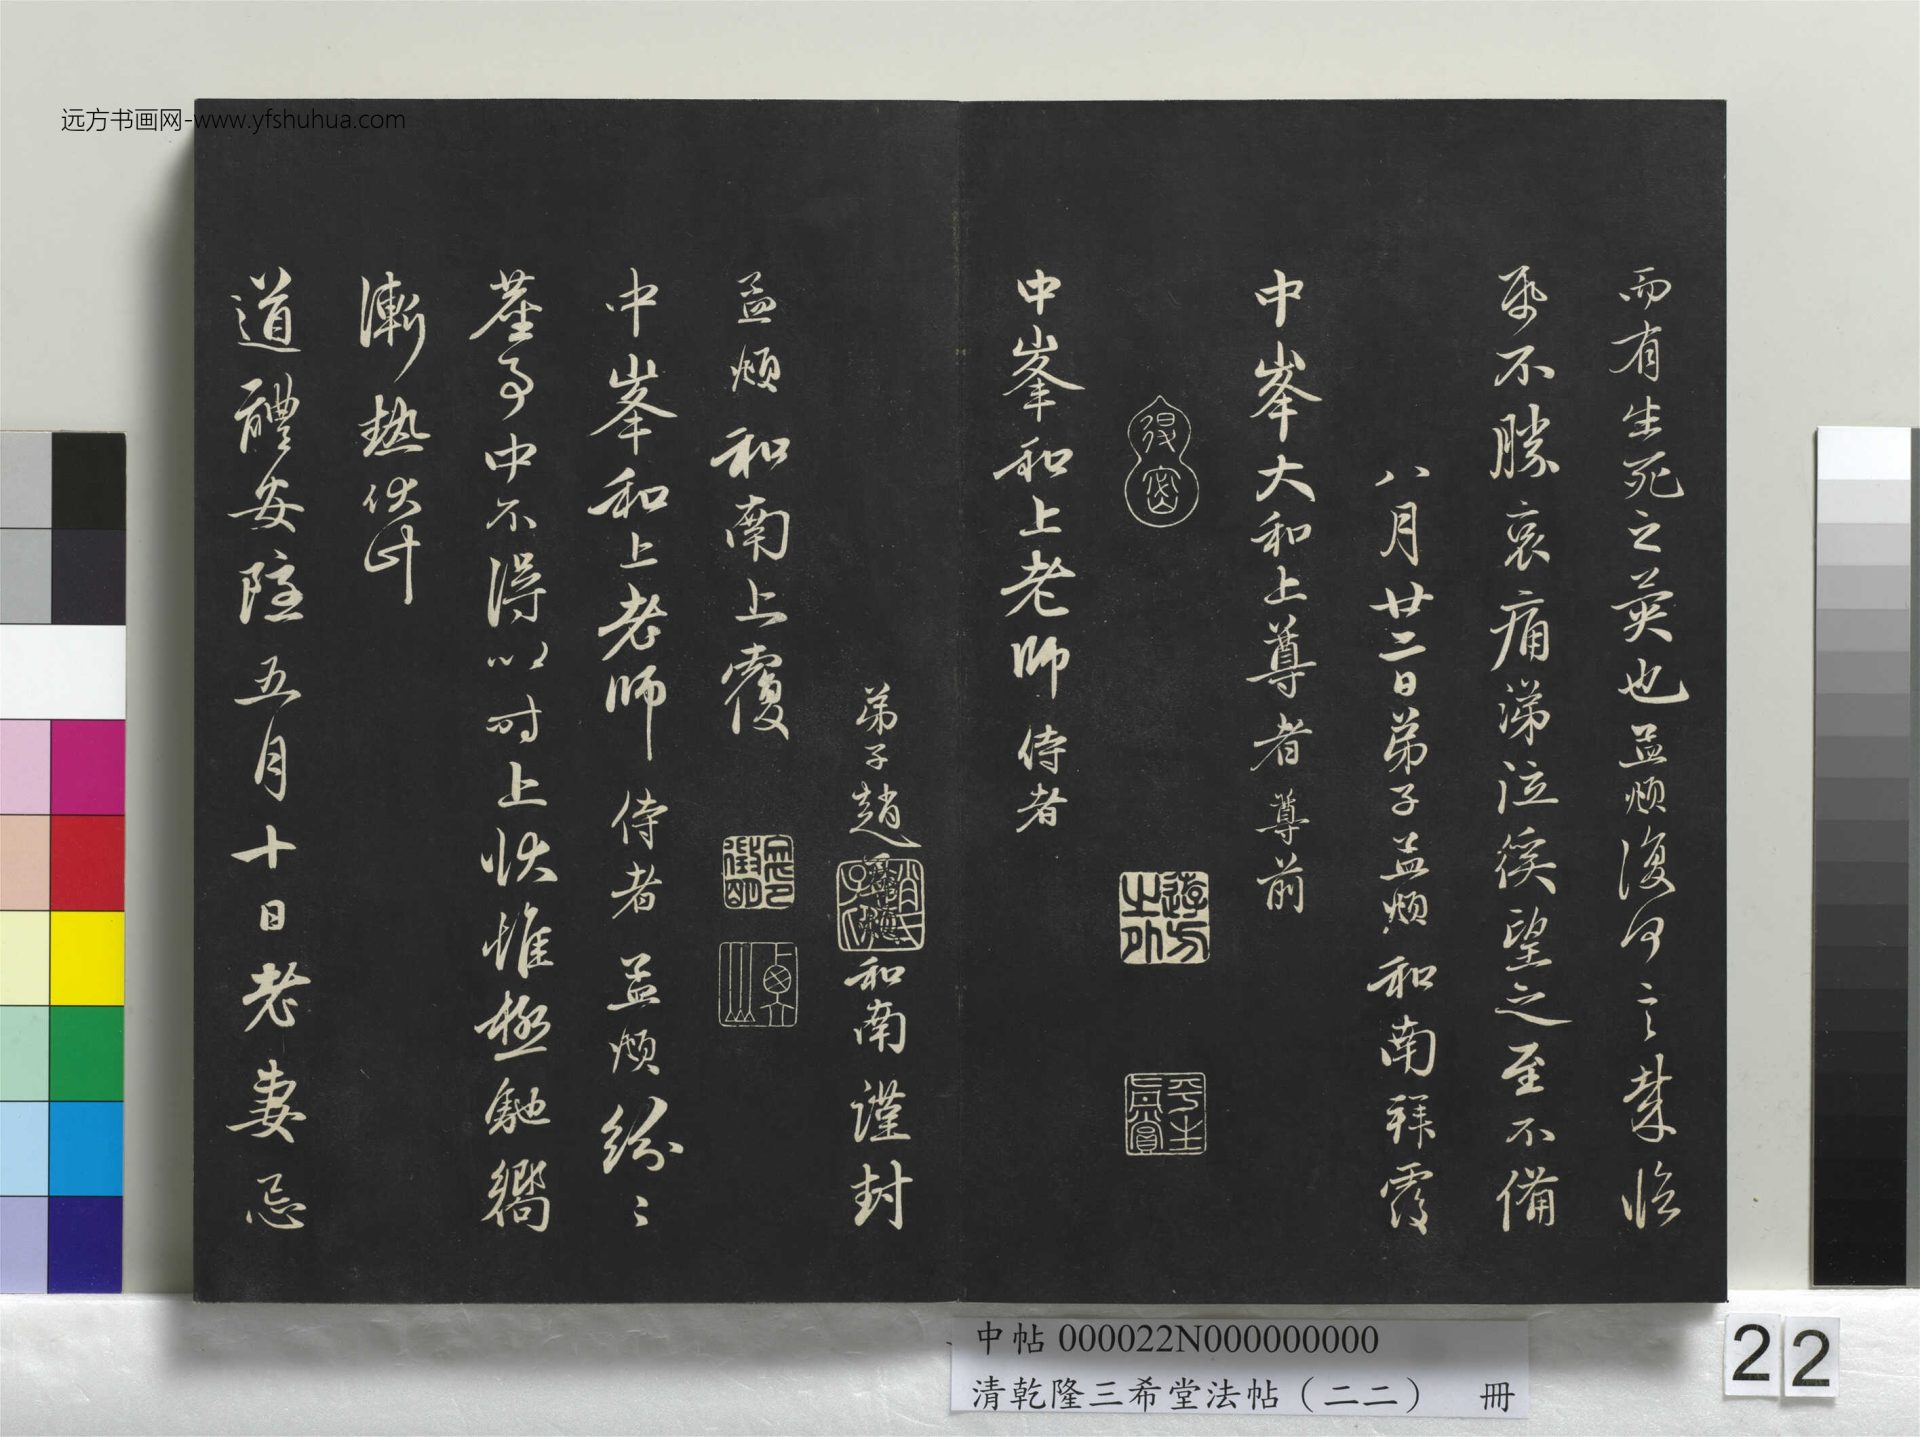 远方书画网-www.yfshuhua.com
而有生死之異也孟頫復何言榮臨
紙不勝哀痛涕泣徯望之至不備
八月廿二日弟子孟頫和南拜覆
中峯大和上尊者尊前
中峯和上老師侍者
弟子趙和南謹封
孟頫和南上覆
中峯和上老師侍者孟頫紛〻
塵事中不得以時上狀惟極馳嚮
漸熱伏計
道體安隱五月十日老妻忌
中帖 000022N000000000
清乾隆三希堂法帖（二二） 冊
22